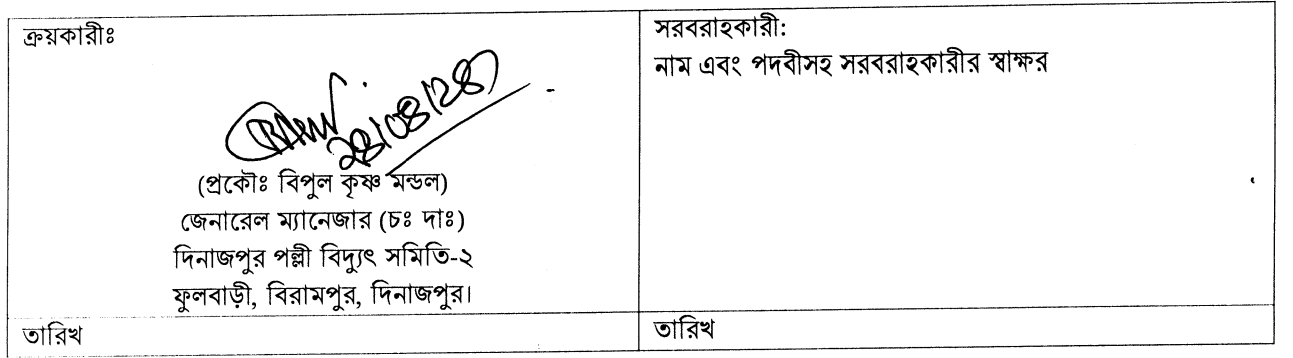 ক্রয়কারীঃ
২৪/০৪/২৪
(প্রকৌঃ বিপুল কৃষ্ণ মন্ডল)
জেনারেল ম্যানেজার (চঃ দাঃ)
দিনাজপুর পল্লী বিদ্যুৎ সমিতি-২
ফুলবাড়ী, বিরামপুর, দিনাজপুর।
তারিখ
সরবরাহকারী:
নাম এবং পদবীসহ সরবরাহকারীর স্বাক্ষর
তারিখ